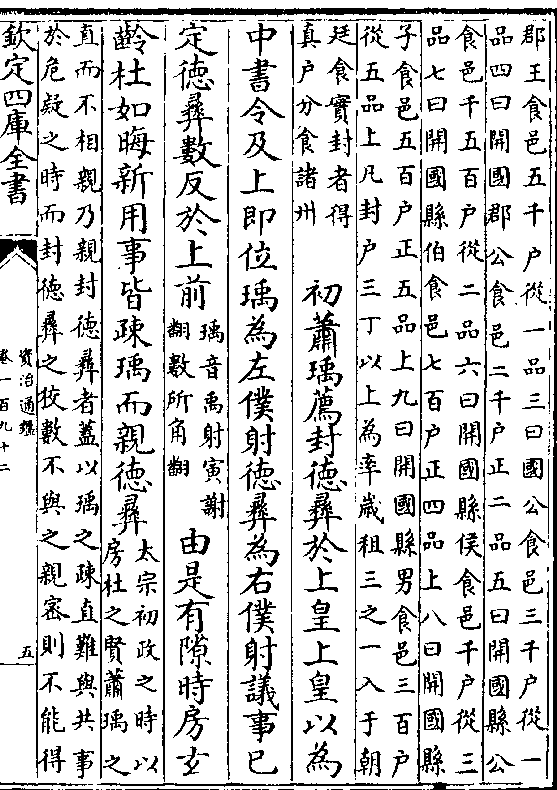 郡王食邑五千户從一品三曰國公食邑三千户從一
品四曰開國郡公食邑二千户正二品五曰開國縣公
食邑千五百户從二品六曰開國縣侯食邑千户從三
品七曰開國縣伯食邑七百户正四品上八曰開國縣
子食邑五百户正五品上九曰開國縣男食邑三百户
從五品上凡封户三丁以上為率歳租三之一入于朝
廷食實封者得
真户分食諸州
初蕭瑀薦封德彝於上皇上皇以為
中書令及上即位瑀為左僕射德彝為右僕射議事已
定德彝數反於上前
瑀音禹射寅謝
翻數所角翻
由是有隙時房玄
齡杜如晦新用事皆疎瑀而親德彝
太宗初政之時以
房杜之賢蕭瑀之
直而不相親乃親封德彝者蓋以瑀之疎直難與共事
於危疑之時而封德彝之狡數不與之親宻則不能得
欽定四庫全書
資治通鑑
卷一百九十二
五